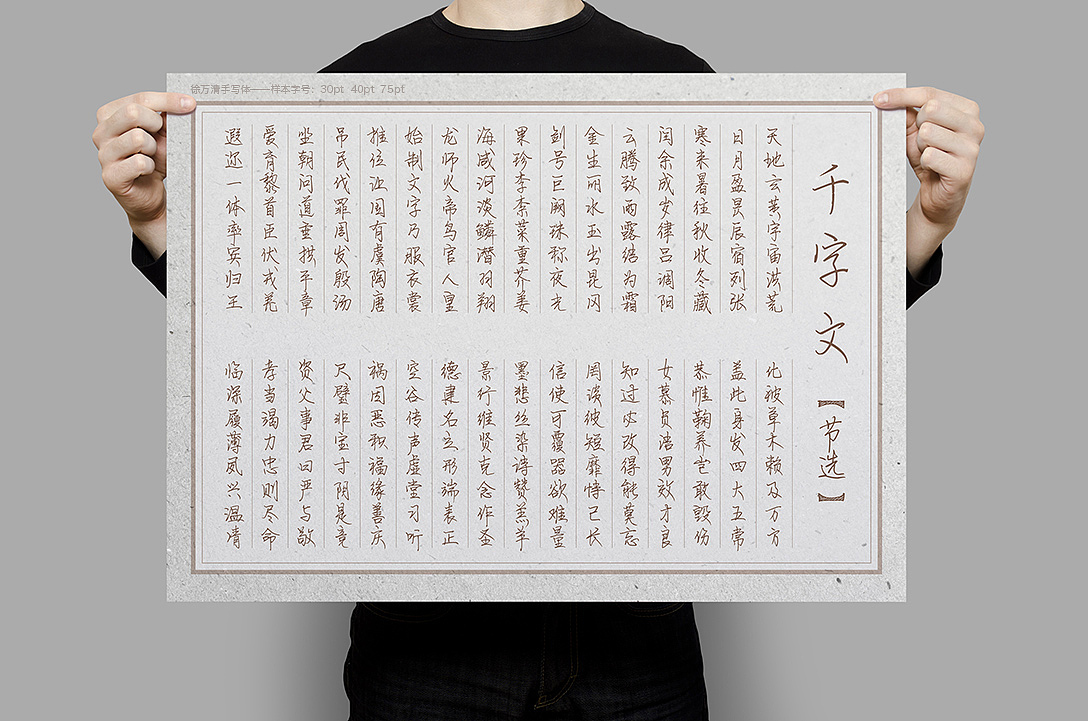 徐万清手写体——样本字号：30pt 40pt 75pt
千字文【节选】
天地玄黄宇宙洪荒
日月盈昃辰宿列张
寒来暑往秋收冬藏
闰余成岁律吕调阳
云腾致雨露结为霜
金生丽水玉出昆冈
剑号巨阙珠称夜光
果珍李柰菜重芥姜
海咸河淡鳞潜羽翔
龙师火帝鸟官人皇
始制文字乃服衣裳
推位让国有虞陶唐
吊民伐罪周发殷汤
坐朝问道垂拱平章
爱育黎首臣伏戎羌
遐迩一体率宾归王
化被草木赖及万方
盖此身发四大五常
恭惟鞠养岂敢毁伤
女慕贞洁男效才良
知过必改得能莫忘
罔谈彼短靡恃己长
信使可覆器欲难量
墨悲丝染诗赞羔羊
景行维贤克念作圣
德建名立形端表正
空谷传声虚堂习听
祸因恶积福缘善庆
尺璧非宝寸阴是竞
资父事君曰严与敬
孝当竭力忠则尽命
临深履薄夙兴温清